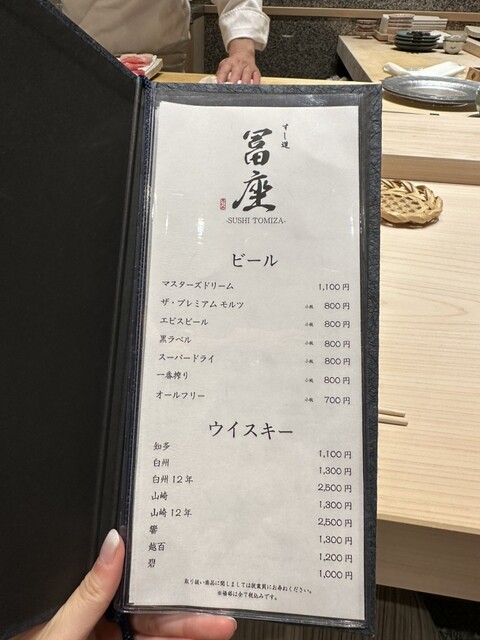 すし道
冨座
-SUSHI TOMIZA-
ビール
マスターズドリーム 1,100円
ザ・プレミアム モルツ 小瓶 800円
エビスビール 小瓶 800円
黒ラベル 小瓶 800円
スーパードライ 小瓶 800円
一番搾り 小瓶 800円
オールフリー 小瓶 700円
ウイスキー
知多 1,100円
白州 1,300円
白州 12年 2,500円
山崎 1,300円
山崎 12年 2,500円
響 1,300円
越百 1,200円
碧 1,000円
取り扱い商品に関しましては従業員にお尋ねください。
※価格は全て税込みです。